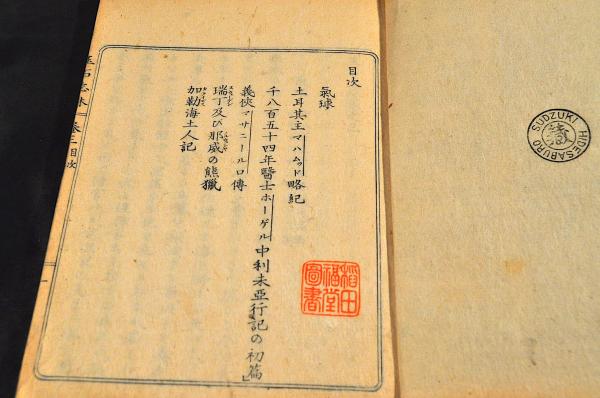 目次
氣球
土耳其主マハムッド略紀
千八百五十四年醫士ホーゲル中利未亞行記の初篇」
義俠マサニールロ傳
瑞丁及び那威の熊獵
加勒海土人記
玉石志林 卷三目次
稻田福堂圖書
SUDZUKI HIDESABURO
藏